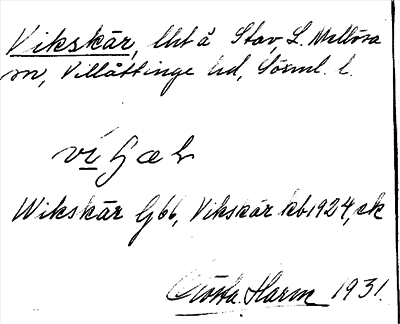 Vikskär, lht å Stav, L. Mellösa
sn, Villåttinge hd, Södml. l.
Wikskär Gj66, Vikskär kb1924, ek
Gösta Harm 1931.